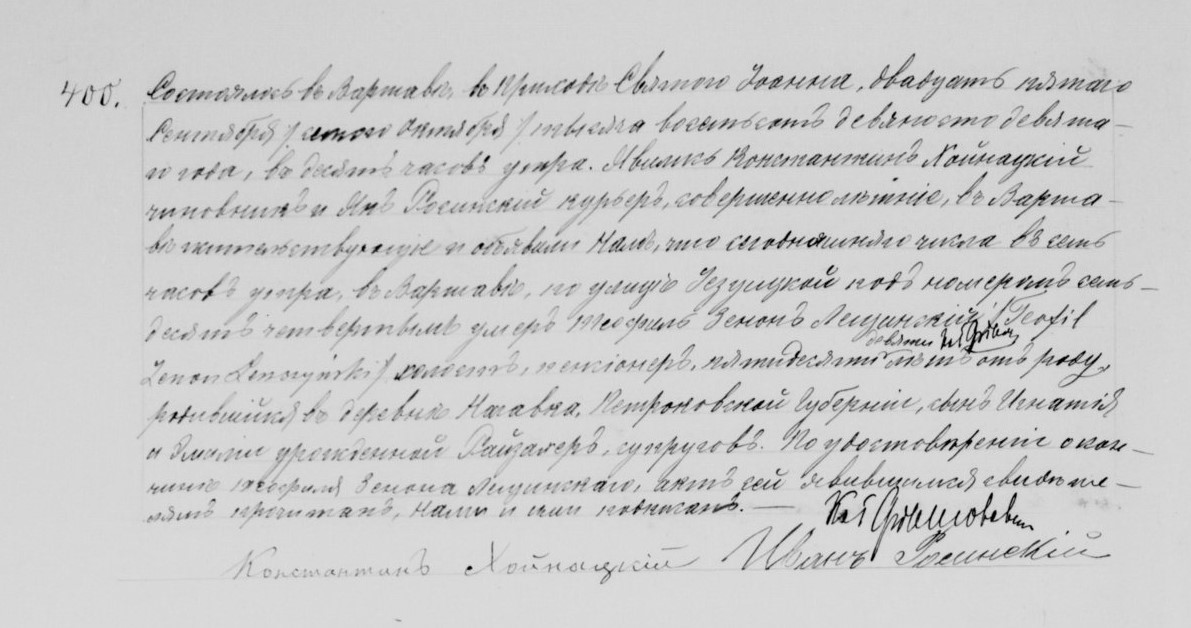 400. Состоялось въ Варшавѣ, въ Приходѣ Святого Іоанна, двадцать пятаго
Сентября /: седьмого Октября / тысяча восемьсотъ девяносто девята-
го года, въ десять часовъ утра. Явились Константинъ Хойнацкій
чиновникъ и Янъ Росинскій курьеръ, совершеннолѣтніе, въ Варша-
вѣ жительствующіе и объявили Намъ, что сегодняшняго числа въ семь
часовъ утра, въ Варшавѣ, по улицѣ Іезуицкой подъ номеромъ семь-
десятъ четвертымъ умеръ Теофиль Зенонъ Лещинскій / Teofil
девяти
Zenon Leszczyński / холостъ, пенсіонеръ, пятидесяти лѣтъ отъ роду,
родившійся въ деревнѣ Петроковской Губерніи, сынъ Игнатія
и Эмиліи урожденной супруговъ. По удостовѣреніи о кон-
чинѣ Теофиля Зенона Лещинскаго, актъ сей явившимся свидѣте-
лямъ прочитанъ, Нами и ими подписанъ. —
Константинъ Хойнацкій Иванъ Росинскій